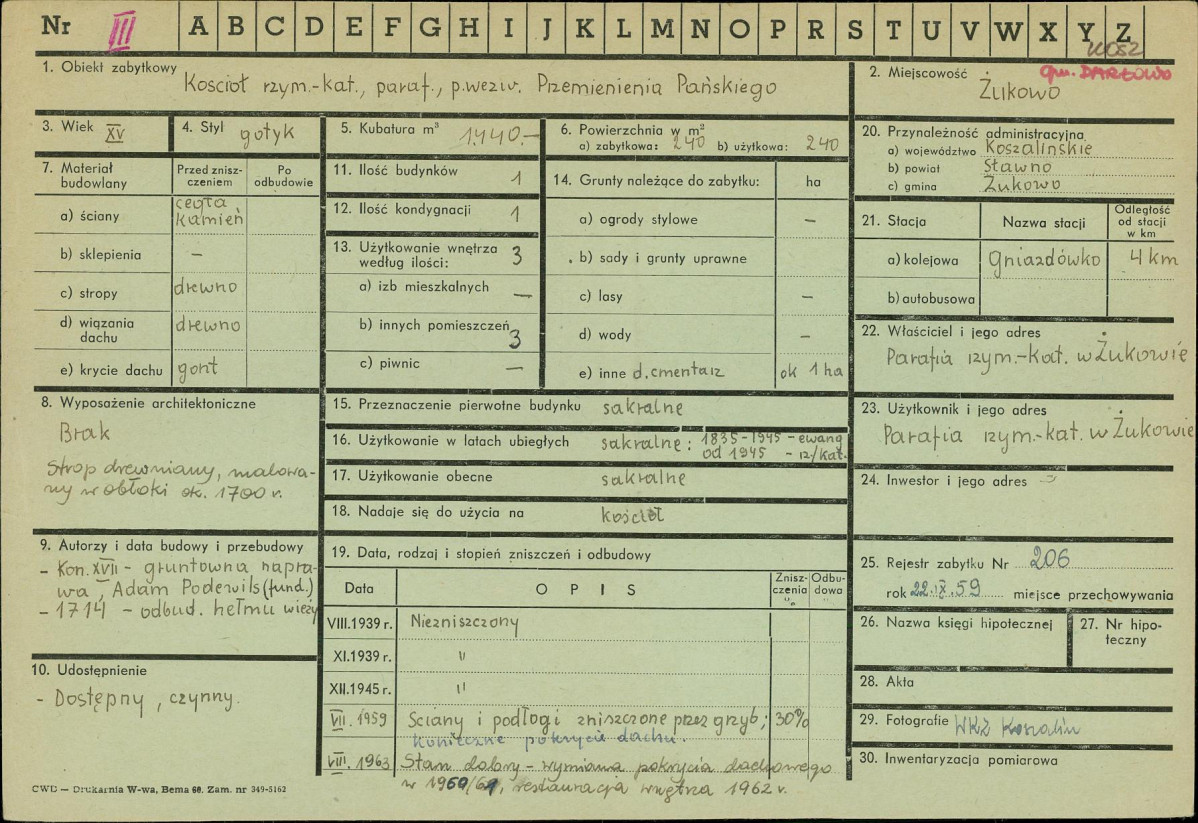 Nr III A B C D E F G H I J K L M N O P R S T U V W X Y Z
KOSZ
gm. DARŁOWO
1. Obiekt zabytkowy Kościół rzym.-kat., paraf., p.wezw. Przemienienia Pańskiego
2. Miejscowość Żukowo
3. Wiek XV
4. Styl gotyk
5. Kubatura m³ 1.440.-
6. Powierzchnia w m²
a) zabytkowa: 240 b) użytkowa: 240
7. Materiał budowlany
Przed znisz-
czeniem
Po
odbudowie
a) ściany cegła
kamień
b) sklepienia –
c) stropy drewno
d) wiązania
dachu drewno
e) krycie dachu gont
8. Wyposażenie architektoniczne
Brak
Strop drewniany, malowa-
ny w obłoki ok. 1700 r.
9. Autorzy i data budowy i przebudowy
- Kon. XVII - gruntowna napra-
wa, Adam Podewils (fund.)
- 1714 - odbud. hełmu wieży
10. Udostępnienie
- Dostępny, czynny.
11. Ilość budynków 1
12. Ilość kondygnacji 1
13. Użytkowanie wnętrza
według ilości: 3
a) izb mieszkalnych –
b) innych pomieszczeń 3
c) piwnic –
14. Grunty należące do zabytku: ha
a) ogrody stylowe –
b) sady i grunty uprawne
c) lasy –
d) wody –
e) inne d. cmentarz ok 1 ha
15. Przeznaczenie pierwotne budynku sakralne
16. Użytkowanie w latach ubiegłych sakralne: 1835-1945 - ewang
od 1945 - rz/kat.
17. Użytkowanie obecne sakralne
18. Nadaje się do użycia na kościół
19. Data, rodzaj i stopień zniszczeń i odbudowy
Data
OPIS
Znisz-
czenia
%
Odbu-
dowa
%
VIII.1939 r. Niezniszczony
XI.1939 r. "
XII.1945 r. "
VII.1959 Ściany i podłogi zniszczone przez grzyb; 30%
konieczne pokrycie dachu.
VIII.1963 Stan dobry - wymiana pokrycia dachowego
w 1960/61, restauracja wnętrza 1962 r.
20. Przynależność administracyjna
a) województwo Koszalińskie
b) powiat Sławno
c) gmina Żukowo
21. Stacja
Nazwa stacji
Odległość
od stacji
w km
a) kolejowa Gniazdówko 4 km
b) autobusowa
22. Właściciel i jego adres
Parafia rzym.-kat. w Żukowie
23. Użytkownik i jego adres
Parafia rzym.-kat. w Żukowie
24. Inwestor i jego adres
25. Rejestr zabytku Nr 206
rok 22.IX.59 miejsce przechowywania
26. Nazwa księgi hipotecznej
27. Nr hipo-
teczny
28. Akta
29. Fotografie WKZ Koszalin
30. Inwentaryzacja pomiarowa
CWD — Drukarnia W-wa, Bema 60. Zam. nr 349-5162